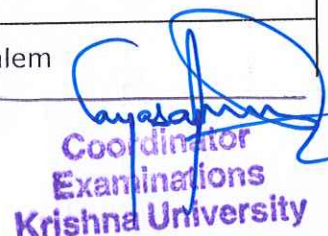 alem
Coordinator
Examinations
Krishna University